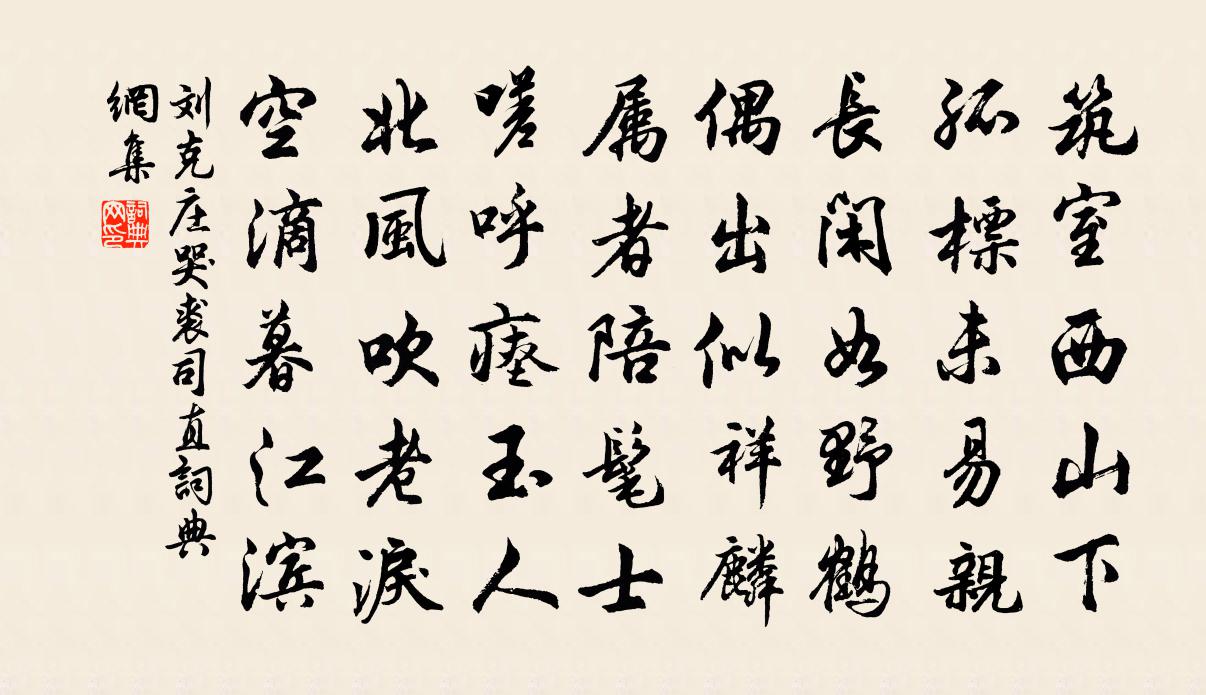 筑室西山下
孤標未易親
長閑如野鶴
偶出似祥麟
属者陪髦士
嗟呼瘗玉人
北風吹老淚
空滴暮江滨
刘克庄哭裘司直詞典
網集
詞典
网印